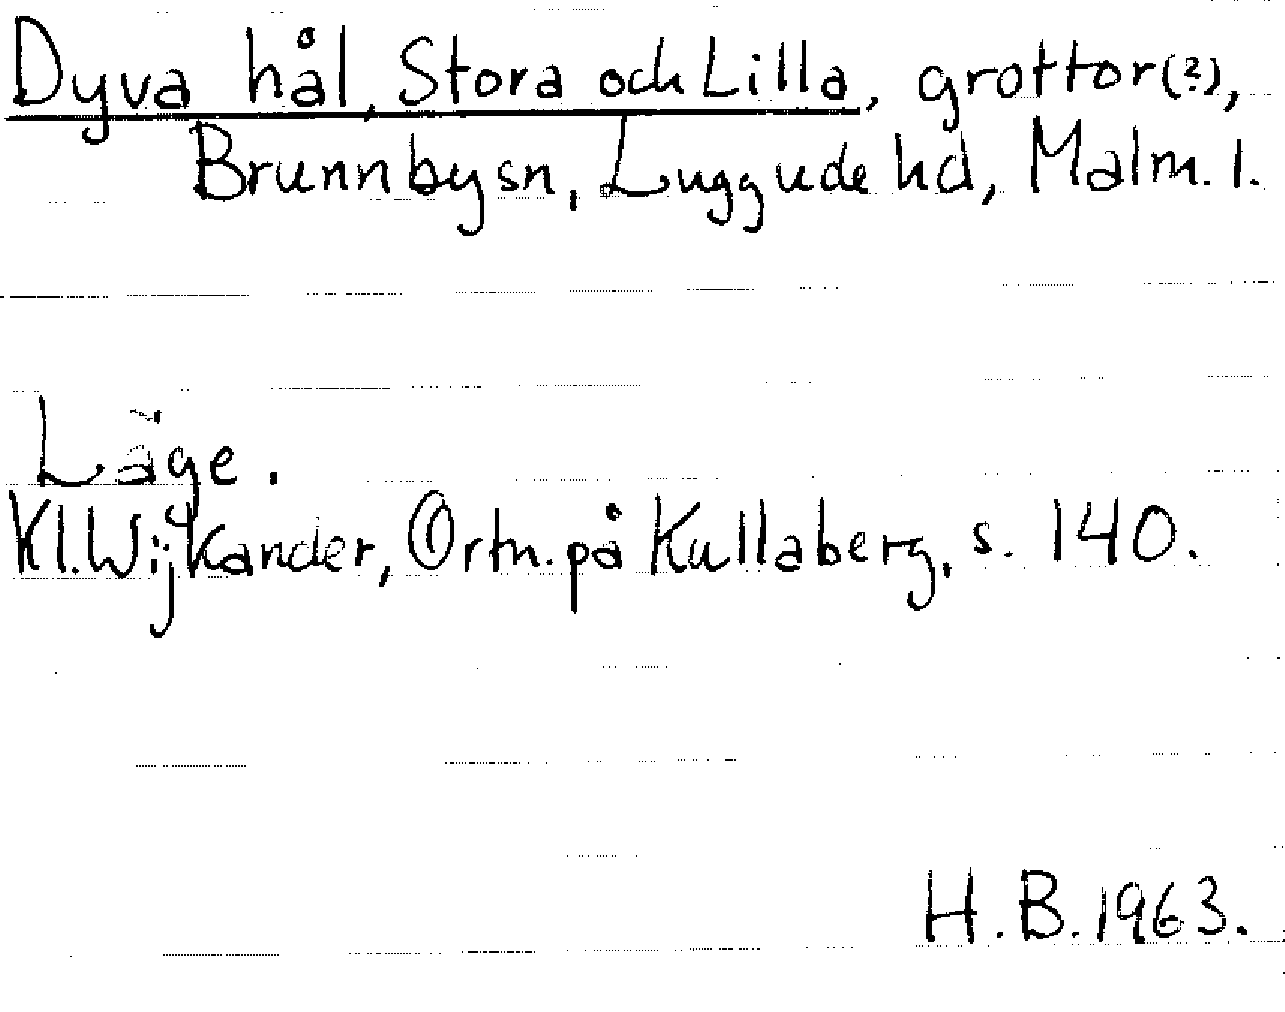 Dyva hål, Stora och Lilla, grottor(?),
Brunnby sn, Luggude hd, Malm. l.
Läge.
Kl. Wijkander, Ortn. på Kullaberg, s. 140.
H. B. 1963.